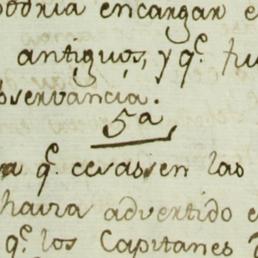 podria encargar e
antiguos, y q.e fu
bservancia.
5a
a q.e cesassen las
havia advertido e
q.e los Capitanes